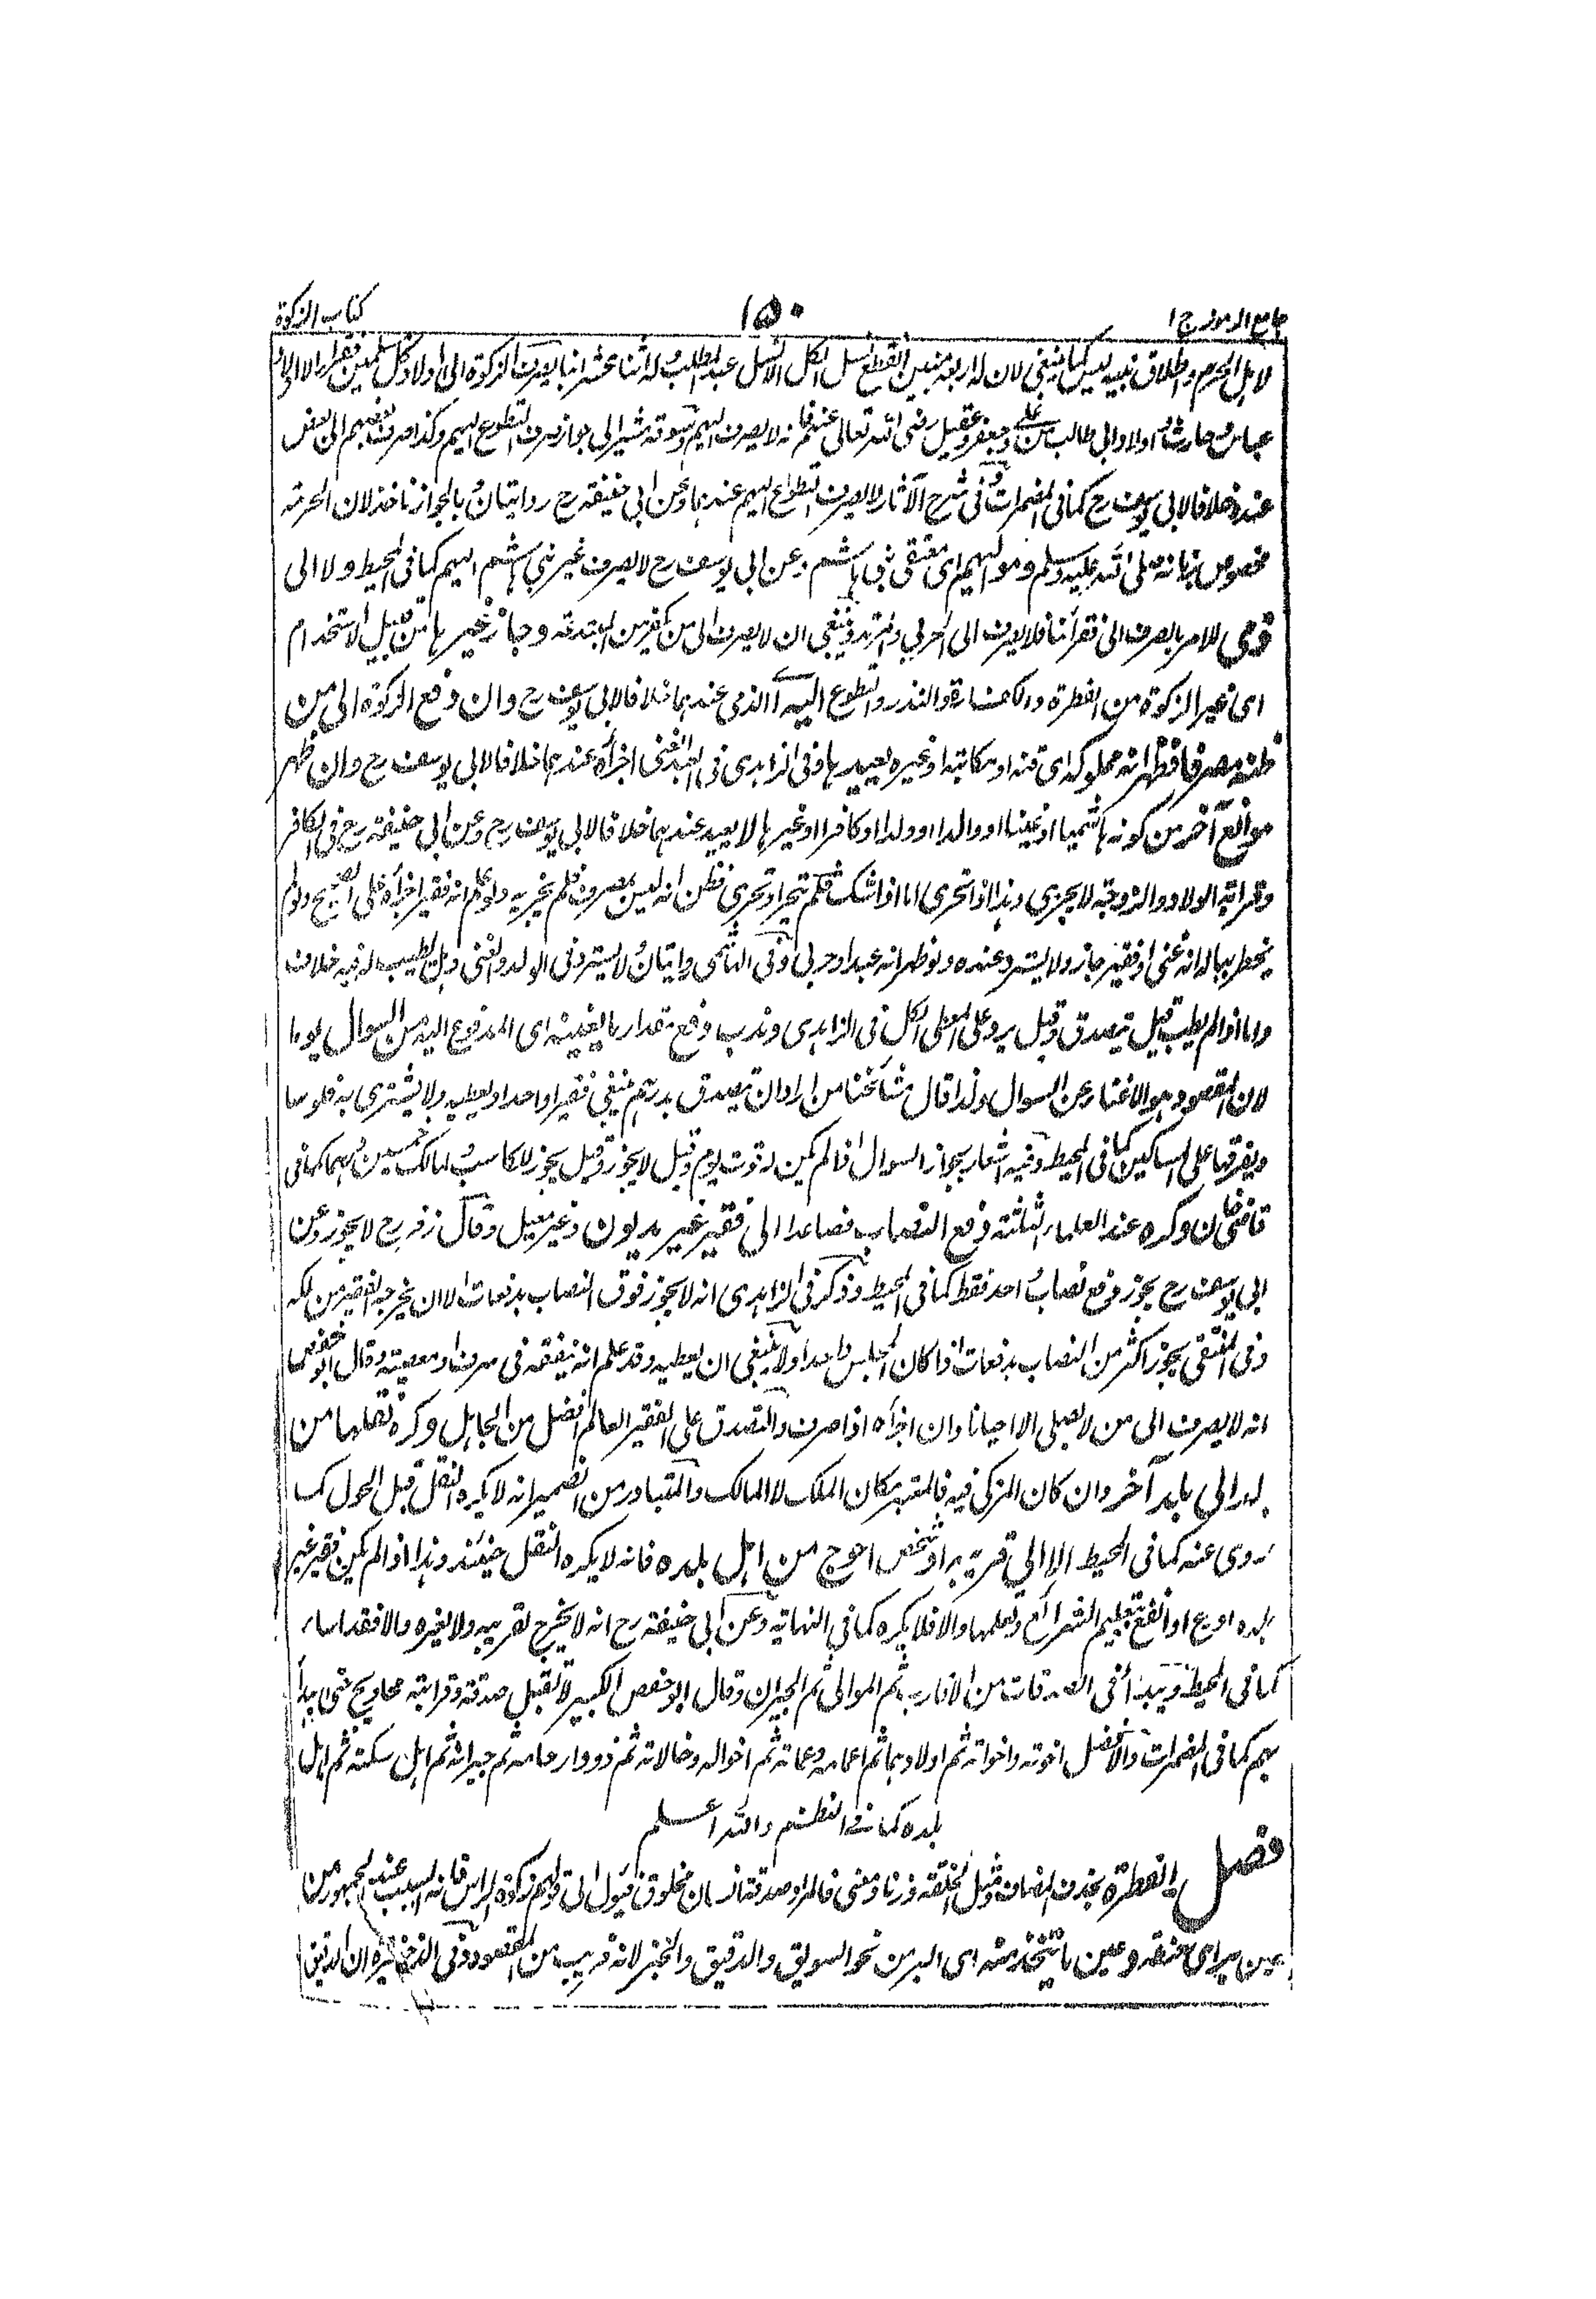 جامع الرموز ج ۱
۱۵۰
كتاب الزكوة
لا بل المحرم واطلاق بنيه ليس كما ينبغي لان له اربعة بنين انقطع نسل الكل الا نسل عبد المطلب وله اثنا عشر ابنا يصرف الزكوة الى اولاد كل مسلمين فقراء الا اولاد
عباس وحارث واولاد ابي طالب من علي وجعفر وعقيل رضي الله تعالى عنهم فانه لا يصرف اليهم وسوقه مشير الى جواز صرف التطوع اليهم وكذا صرف بعضهم الى بعض
عنده خلافا لابي يوسف رح كما في المضمرات وفي شرح الآثار لا يصرف التطوع اليهم عندهما وعن ابي حنيفة رح روايتان وبالجواز ناخذ لان الحرمة
مخصوص بزمانه صلى الله عليه وسلم ومواليهم اي معتقي بني هاشم وعن ابي يوسف رح لا يصرف غير بني هاشم اليهم كما في المحيط ولا الى
ذمي للامر بالصرف الى فقرائنا فلا يصرف الى الحربي والمرتد وينبغي ان لا يصرف الى من يكفر من المبتدعة وجاز غيرها من قبيل الاستخدام
اي غير الزكوة من الفطرة والكفارة والنذر والتطوع اليه اي الذمي عندهما خلافا لابي يوسف رح وان دفع الزكوة الى من
ظنه مصرفا فظهر انه مملوكه اي قنه او مكاتبه او غيره يعيدها وفي الزاهدي في العبد الغني اجزأه عندهما خلافا لابي يوسف رح وان ظهر
موانع آخر من كونه هاشميا او غنيا او والدا او ولدا او كافرا او غيرها لا يعيد عندهما خلافا لابي يوسف رح وعن ابي حنيفة رح في الكافر
وقرابة الولاد والزوجة لا يجزي وهذا اذا تحرى اما اذا شك فلم يتحر او تحرى فظن انه ليس بمصرف فلم يجز به ولو علم انه فقير اجزأه على الصحيح ولو لم
يخطر بباله انه غني او فقير جاز ولا يسترد عنده ولو ظهر انه عبد او حربي وفي الهاشمي روايتان ولا يسترد في الولد والغني وهل يطيب له فيه خلاف
واما اذا لم يطب قيل يتصدق وقيل يرد على المعطي الكل في الزاهدي وندب دفع مقدار ما يغنيه اي المدفوع اليه من السوال يوما
لان المقصود هو الاغناء عن السوال ولذا قال مشائخنا من اراد ان يتصدق بدرهم فيبغي فقيرا واحدا ويعطيه ولا يشتري به فلوسا
ويفرقها على المساكين كما في المحيط وفيه اشعار بجواز السوال اذا لم يكن له قوت يوم وقيل لا يجوز وقيل يجوز للكاسب ولمالك خمسين درهما كما في
قاضيخان وكره عند العلماء الثلثة دفع النصاب فصاعدا الى فقير غير مديون وغير معيل وقال زفر رح لا يجوز وعن
ابي يوسف رح يجوز دفع نصاب واحد فقط كما في المحيط وذكر في الزاهدي انه لا يجوز فوق النصاب بدفعات الا ان يخرجه الفقير من ملكه
وفي المنتقى يجوز اكثر من النصاب بدفعات اذا كان المجلس واحدا ولا ينبغي ان يعطيه وقد علم انه ينفقه في سرف او معصية وقال ابو حفص
انه لا يصرف الى من لا يصلي الا احيانا وان اجزأه اذا صرف والتصدق على الفقير العالم افضل من الجاهل وكره نقلها من
بلد الى بلد آخر وان كان المزكي فيه فالمعتبر مكان الملك لا المالك والمتبادر من الضمير انه لا يكره النقل قبل الحول كما
روي عنه كما في المحيط الا الى قريبه او شخص احوج من اهل بلده فانه لا يكره النقل حينئذ وهذا اذا لم يكن فقير غير
بلده اورع او انفع بتعليم الشرائع وتعلمها والا فلا يكره كما في النهاية وعن ابي حنيفة رح انه لا يخرج لقريبه ولا لغيره والا فقد اساء
كما في المحيط ويبدأ في الصدقات من الاقارب ثم الموالى ثم الجيران وقال ابو حفص الكبير لا تقبل صدقته وقرابته محاويج حتى يبدأ
بهم كما في المضمرات والافضل اخوته واخواته ثم اولادهما ثم اعمامه وعماته ثم اخواله وخالاته ثم ذوو ارحامه ثم جيرانه ثم اهل سكته ثم اهل
بلده كما في النظم والله اعلم
فصل الفطرة بحذف المضاف ومثل الخلقة وزنا ومعنى فالمراد صدقة انسان مخلوق فيؤل الى قولهم زكوة الراس فانه السبب عند الجمهور من
عين بر اي حنطة وعين ما يتخذ منه اي البر من نحو السويق والدقيق والخبز لانه قريب من المقصود وفي الذخيرة ان الدقيق